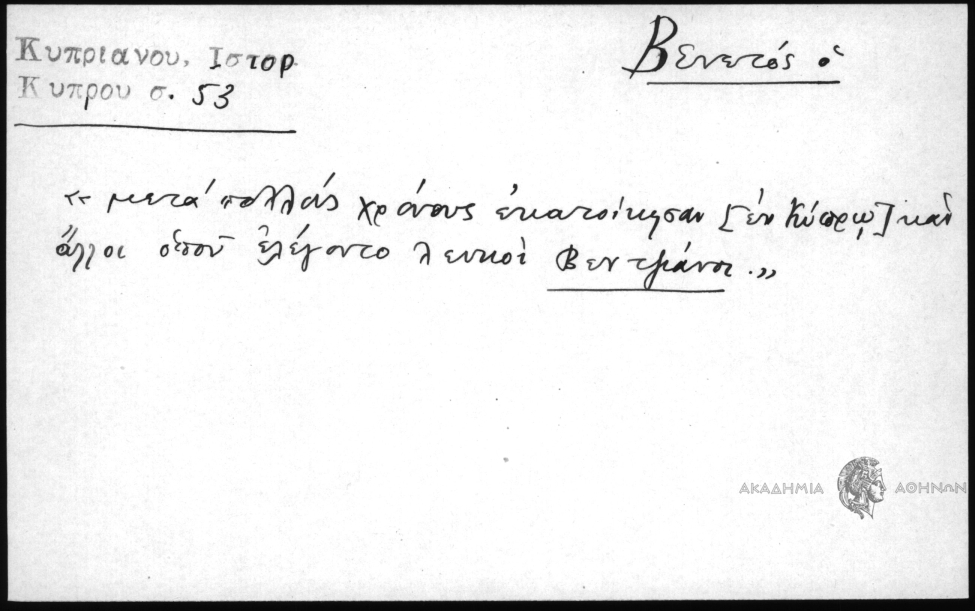 Κυπριανου, Ιστορ.
Κυπρου σ. 53
Βενετός ὁ
«μετὰ πολλοὺς χρόνους ἐκατοίκησαν [ἐν Κύπρῳ] καὶ
ἄλλοι ὁποῦ ἐλέγοντο λευκοὶ Βεντζιάνοι.»
ΑΚΑΔΗΜΙΑ ΑΘΗΝΩΝ